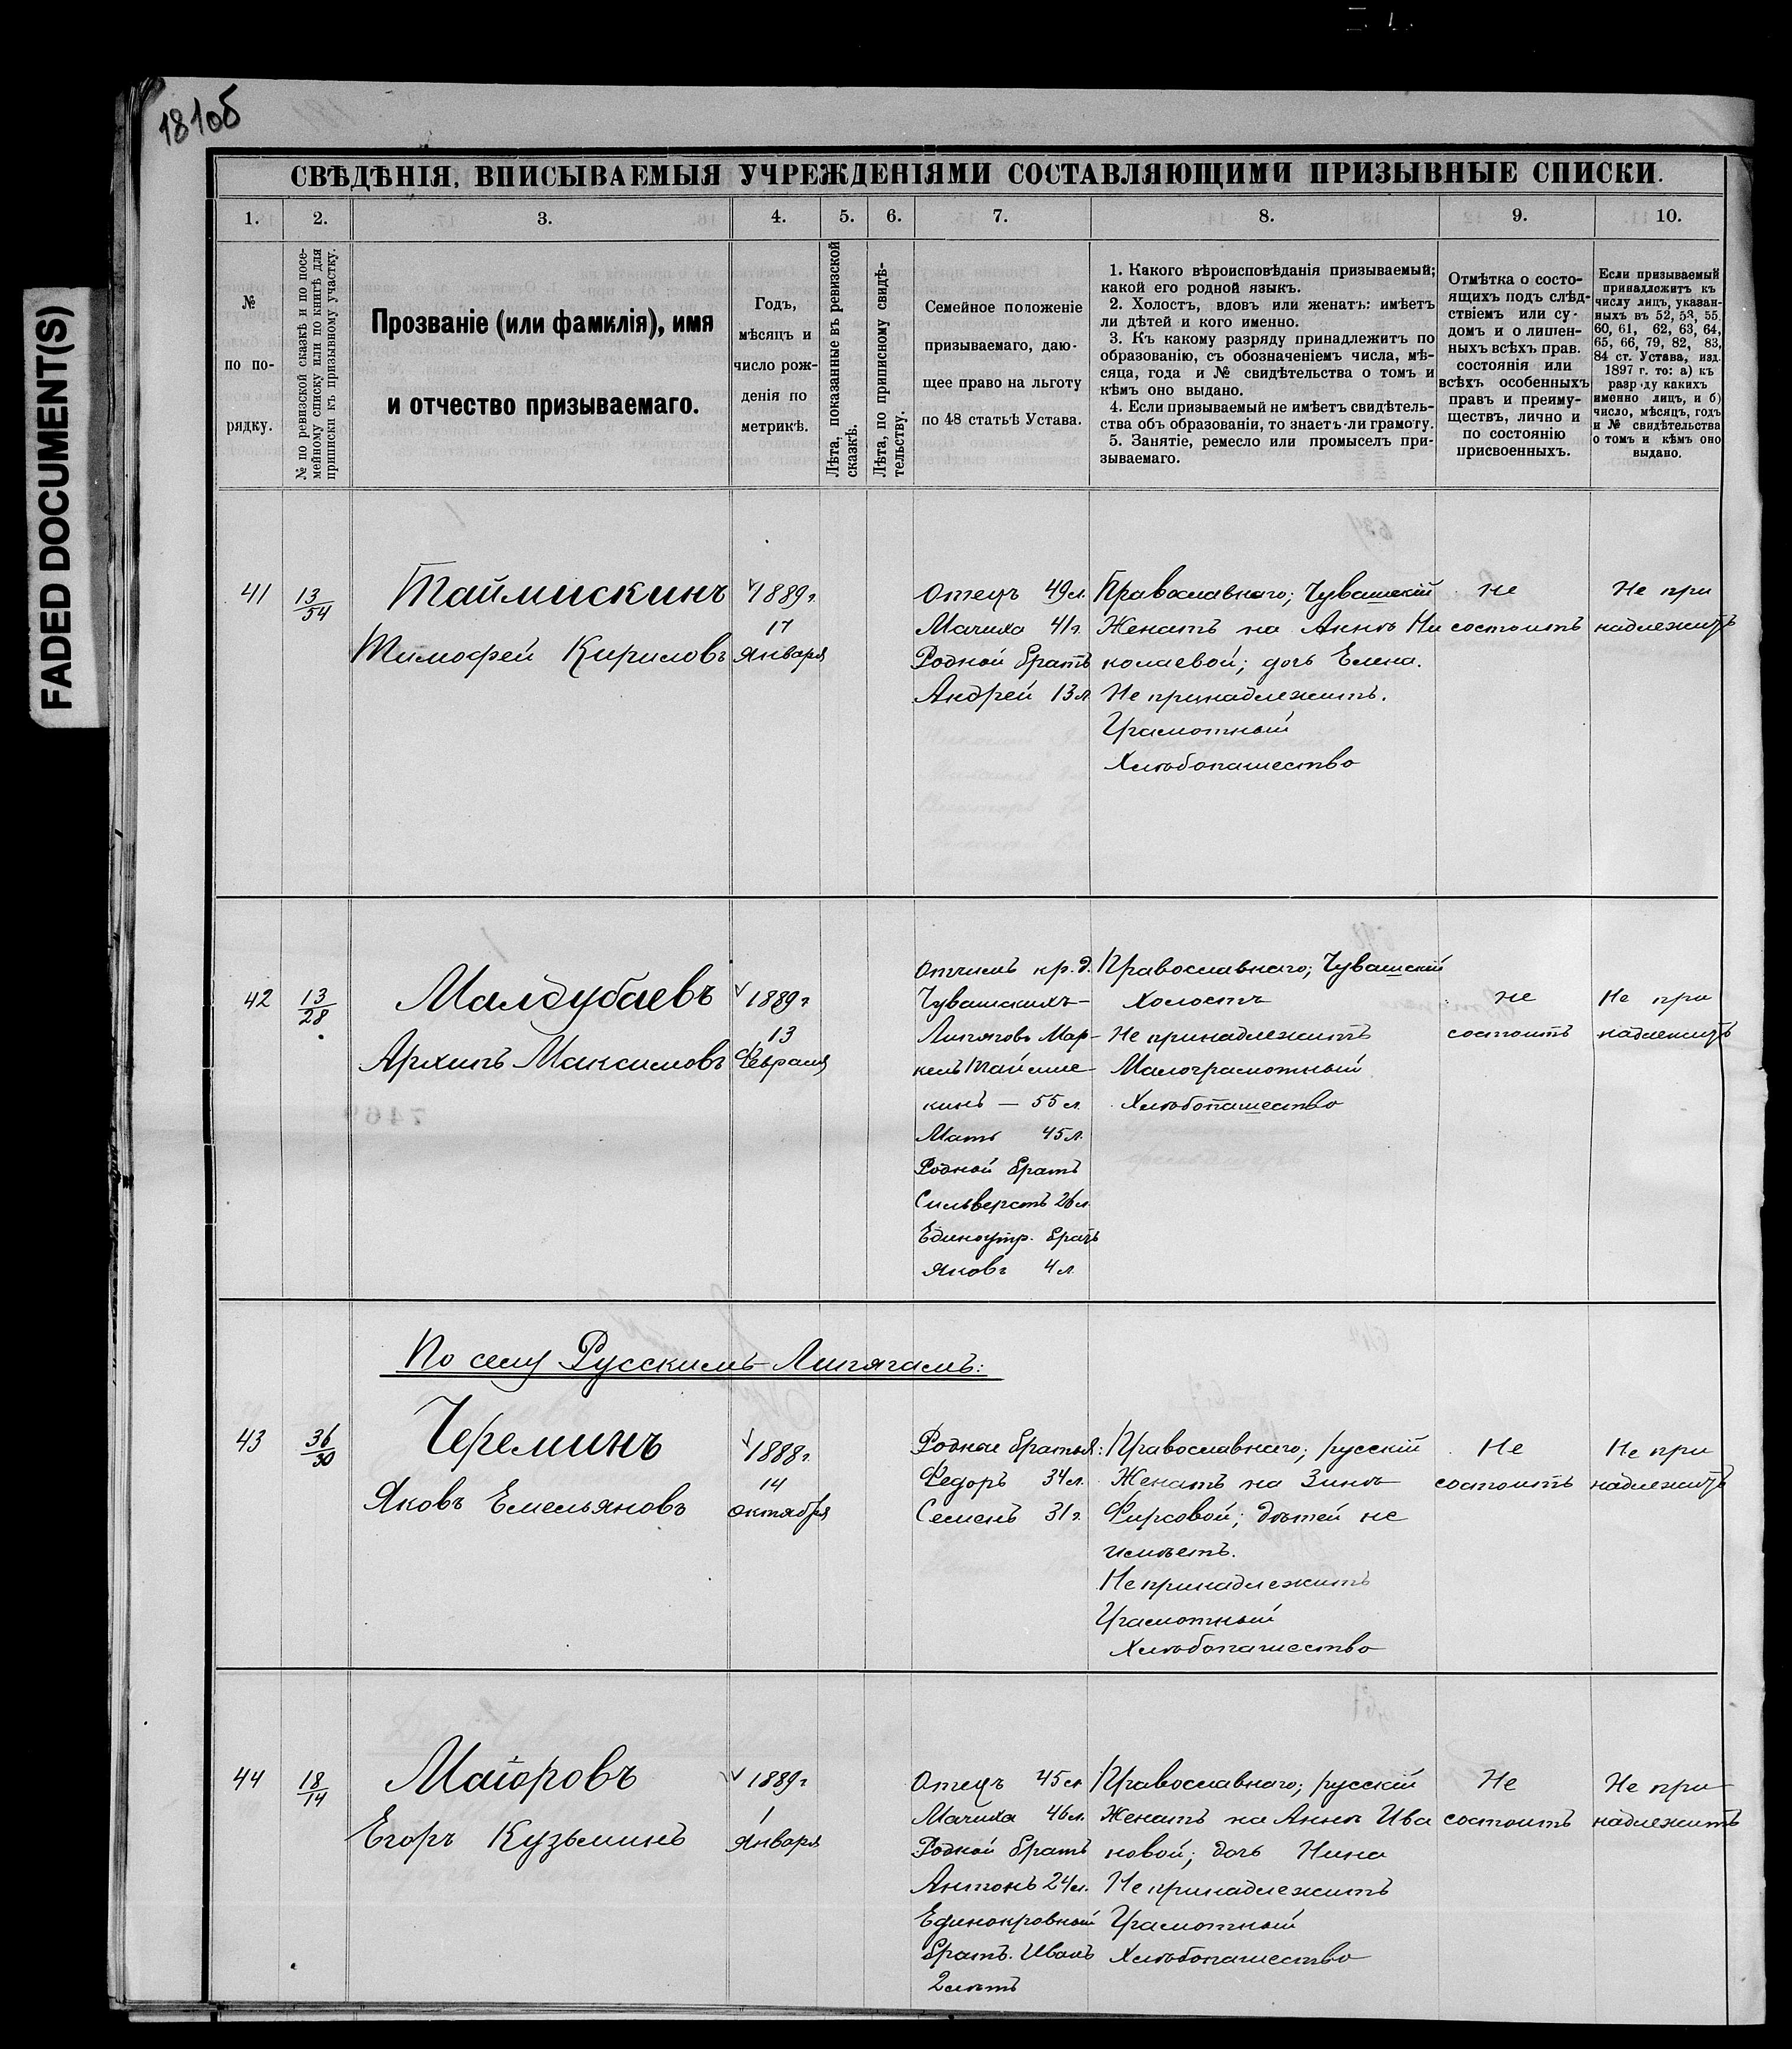 181об
FADED DOCUMENT(S)
СВѢДѢНІЯ, ВПИСЫВАЕМЫЯ УЧРЕЖДЕНІЯМИ СОСТАВЛЯЮЩИМИ ПРИЗЫВНЫЕ СПИСКИ.
1. 2. 3. 4. 5. 6. 7. 8. 9. 10.
№
по по-
рядку.
№ по ревизской сказкѣ и по посе-
мейному списку или по книгѣ для
приписки къ призывному участку.
Прозваніе (или фамилія), имя
и отчество призываемаго.
Годъ,
мѣсяцъ и
число рож-
денія по
метрикѣ.
Лѣта, показанные въ ревизской
сказкѣ.
Лѣта, по приписному свидѣ-
тельству.
Семейное положеніе
призываемаго, даю-
щее право на льготу
по 48 статьѣ Устава.
1. Какого вѣроисповѣданія призываемый;
какой его родной языкъ.
2. Холостъ, вдовъ или женатъ: имѣетъ
ли дѣтей и кого именно.
3. Къ какому разряду принадлежитъ по
образованію, съ обозначеніемъ числа, мѣ-
сяца, года и № свидѣтельства о томъ и
кѣмъ оно выдано.
4. Если призываемый не имѣетъ свидѣтель-
ства объ образованіи, то знаетъ-ли грамоту.
5. Занятіе, ремесло или промыселъ при-
зываемаго.
Отмѣтка о состо-
ящихъ подъ слѣд-
ствіемъ или су-
домъ и о лишен-
ныхъ всѣхъ прав.
состоянія или
всѣхъ особенныхъ
правъ и преиму-
ществъ, лично и
по состоянію
присвоенныхъ.
Если призываемый
принадлежитъ къ
числу лицъ, указан-
ныхъ въ 52, 53, 55,
60, 61, 62, 63, 64,
65, 66, 79, 82, 83,
84 ст. Устава, изд.
1897 г. то: а) къ
разряду какихъ
именно лицъ, и б)
число, мѣсяцъ, годъ
и № свидѣтельства
о томъ и кѣмъ оно
выдано.
41
13/54
Таймискинъ
Тимофей Кириловъ
1889г.
17
Января
Отецъ 49л.
Мачиха 41г.
Родной братъ
Андрей 13л.
Православнаго; Чувашскій
Женатъ на Аннѣ Ни
колаевой; дочь Елена.
Не принадлежитъ.
Грамотный
Хлѣбопашество
Не
состоитъ
Не при
надлежитъ
42
13/28
Малдубаевъ
Архипъ Максимовъ
1889г
13
Февраля
Отчимъ кр. д.
Чувашскихъ-
Липяговъ Мар-
келъ Таймис-
кинъ — 55л.
Мать 45л.
Родной братъ
Сильверстъ 26л.
Единоутр. братъ
Яковъ 4л.
Православнаго; Чувашскій
Холостъ
Не принадлежитъ
Малограмотный
Хлѣбопашество
Не
состоитъ
Не при
надлежитъ
По селу Русскимъ-Липягамъ:
43
36/30
Череминъ
Яковъ Емельяновъ
1888г.
14
Октября
Родные братья:
Федоръ 34л.
Семенъ 31г.
Православнаго; русскій
Женатъ на Зинѣ
Фирсовой; дѣтей не
имѣетъ.
Не принадлежитъ
Грамотный
Хлѣбопашество
Не
состоитъ
Не при
надлежитъ
44
18/14
Маіоровъ
Егоръ Кузьминъ
1889г
1
Января
Отецъ 45л
Мачиха 46л.
Родной братъ
Антонъ 24л.
Единокровный
братъ. Иванъ
2 лѣтъ
Православнаго; русскій
Женатъ на Аннѣ Ива
новой; дочь Нина
Не принадлежитъ
Грамотный
Хлѣбопашество
Не
состоитъ
Не при
надлежитъ